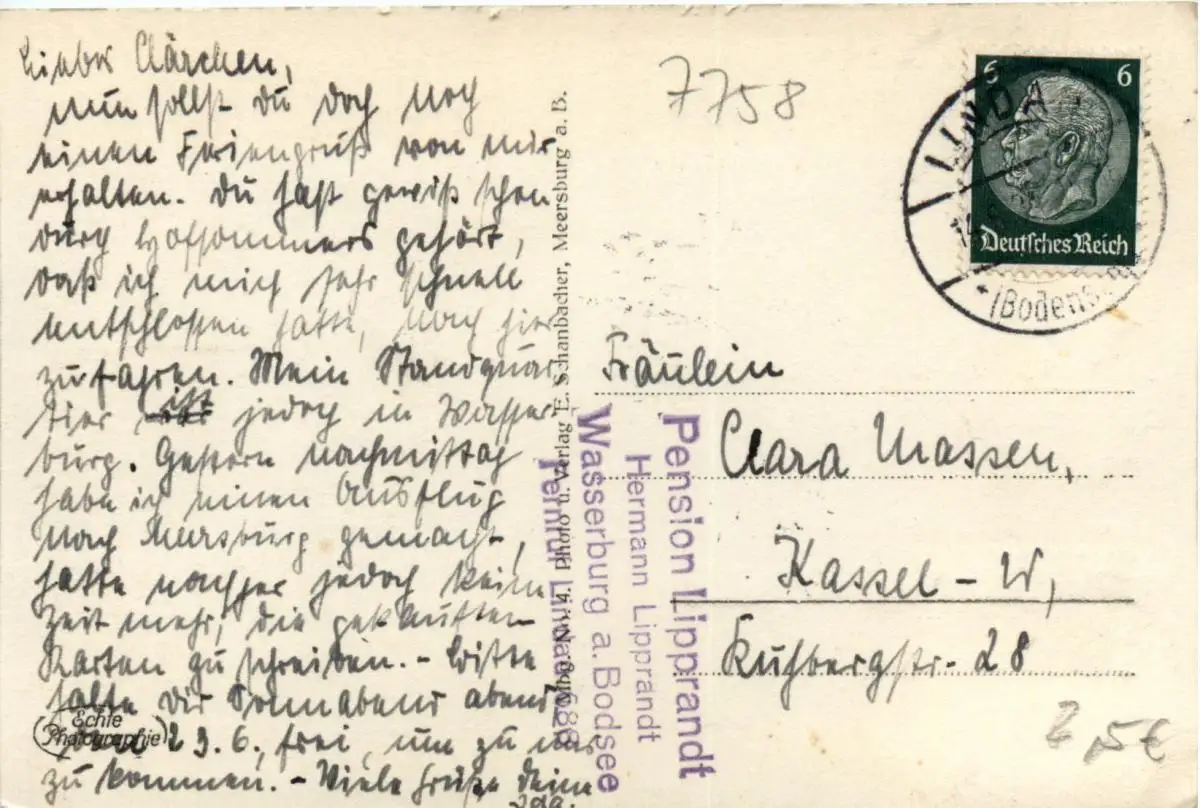 Liebes Clärchen,
nun sollst du doch noch
einen Feriengruß von mir
erhalten. Du hast gewiß schon
durch Hofsommers gehört,
daß ich mich sehr schnell
entschlossen hatte, nach hier
zu fahren. Mein Standquar
tier ist jedoch in Wasser
burg. Gestern nachmittag
habe ich einen Ausflug
nach Meersburg gemacht,
hatte nachher jedoch keine
Zeit mehr, die gekauften
Karten zu schreiben. - Bitte
halte dir Sonnabend abend,
29.6, frei, um zu uns
zu kommen. - Viele Grüße deine
Ida.
Echte
Photographie
Photo u. Verlag E. Schanbacher, Meersburg a. B.
7758
6 6
Deutsches Reich
LINDA
(Bodens
Fräulein
Clara Massen,
Kassel - W,
Kuhbergstr. 28
Pension Lipprandt
Hermann Lipprandt
Wasserburg a. Bodsee
Fernruf Lindau
2,5€